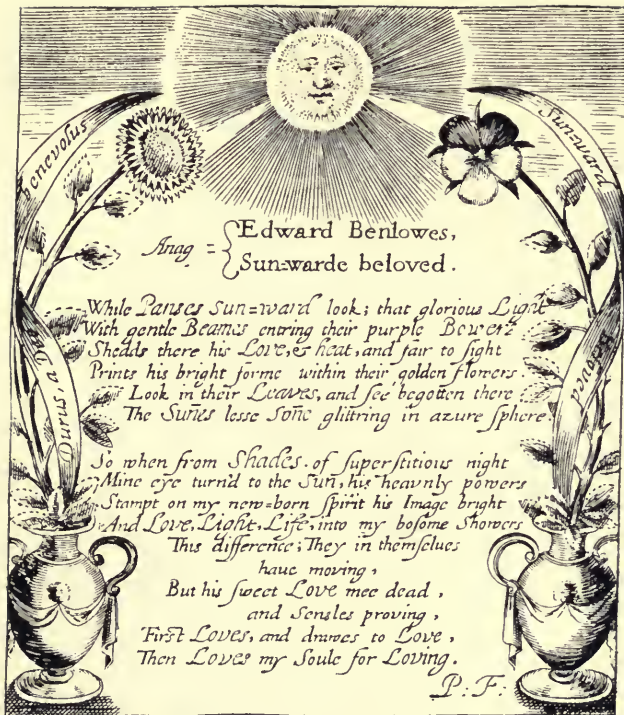 benevolus
Sun-ward
Anag = { Edward Benlowes,
Sun=warde beloved.
While Panses Sun=ward look; that glorious Light
With gentle Beames entring their purple Bowers
Sheads there his Love, & heat, and fair to sight
Prints his bright forme within their golden flowers.
Look in their Leaves, and see begotten there
The Suñes lesse Soñe glittring in azure sphere.
Durus, a Deo
Beloved
So when from Shades of superstitious night
Mine eye turn'd to the Sun, his heav'nly powers
Stampt on my new=born spirit his Image bright
And Love, Light, Life, into my bosome Showers
This difference; They in themselues
haue moving,
But his sweet Love mee dead,
and Sensles proving,
First Loves, and drawes to Love,
Then Loves my Soule for Loving.
P: F: